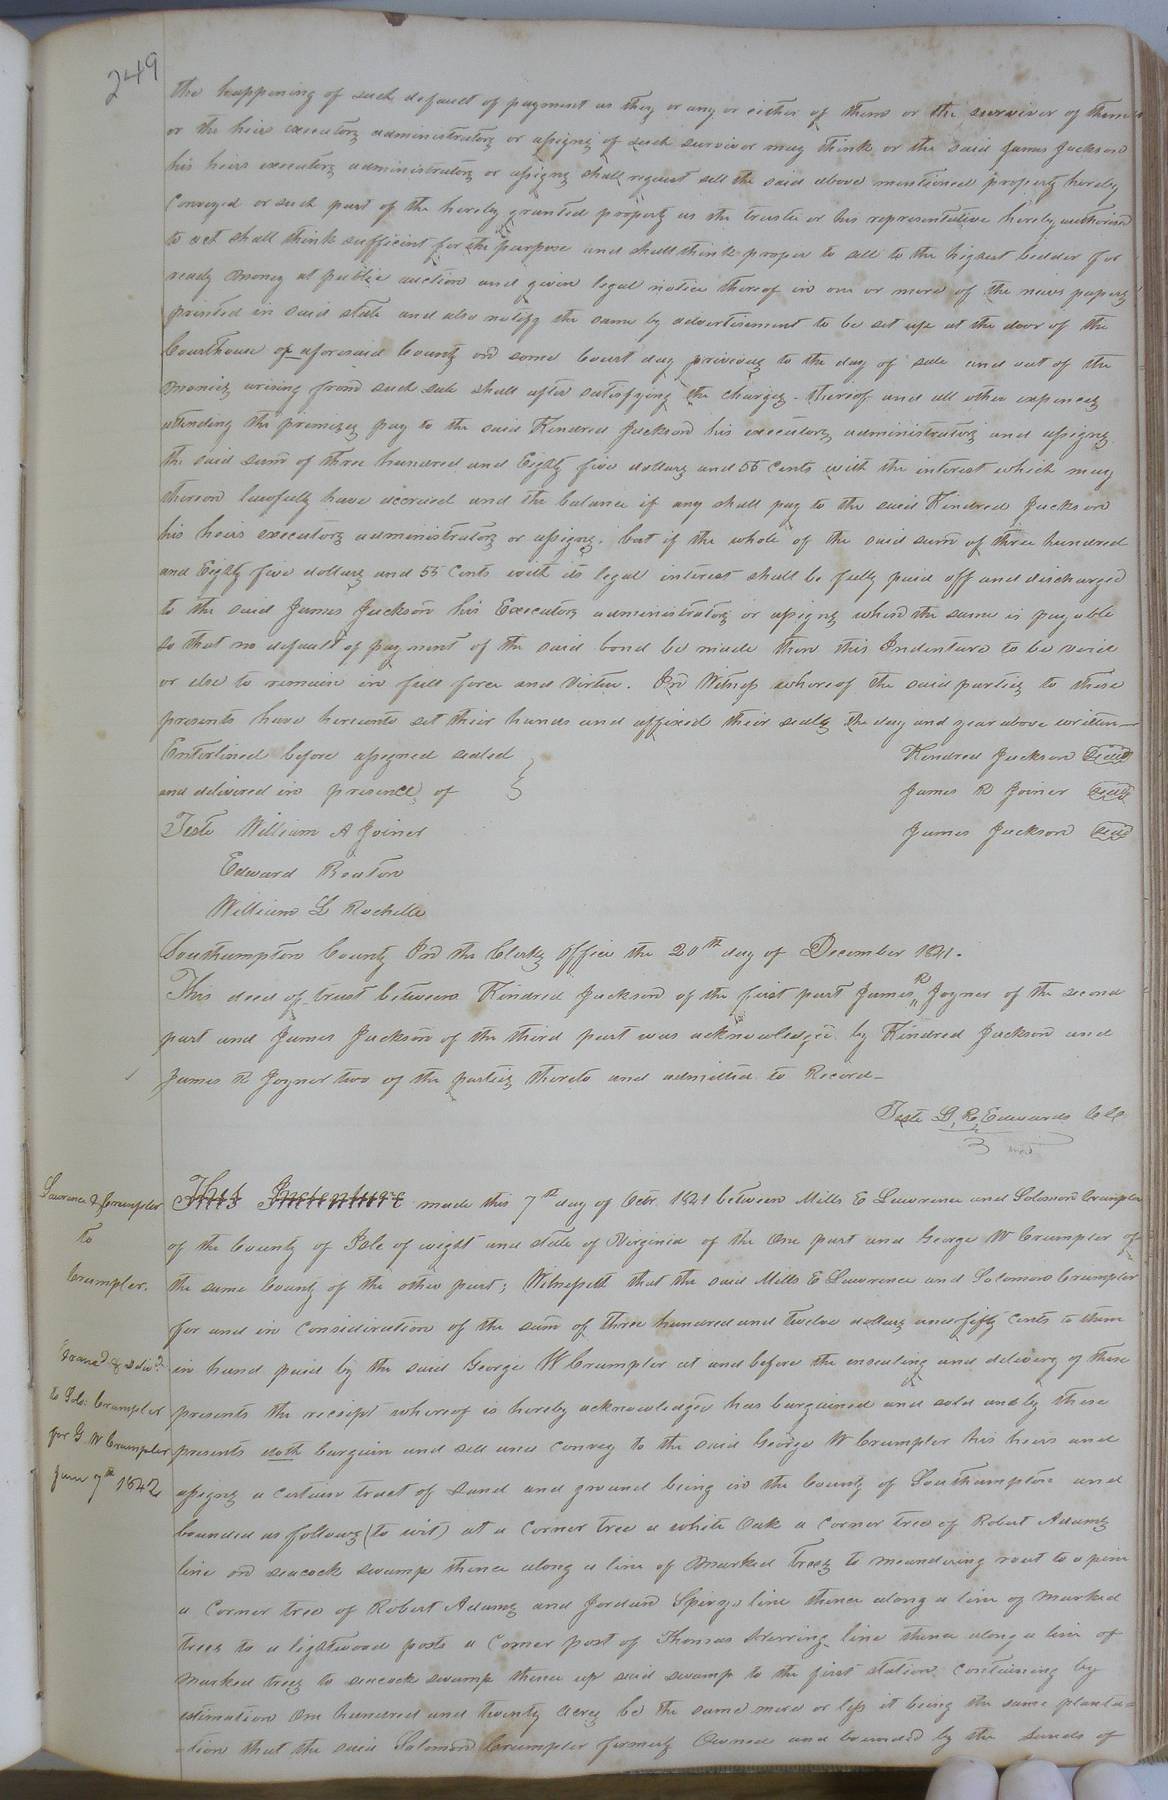 249
the happening of such default of payment as they or any or either of them or the surviver of them
or the heirs executors administrators or assigns of such survivor may think or the said James Jackson
his heirs executors administrators or assigns shall request sell the said above mentioned property hereby
Conveyed or such part of the hereby granted property as the trustee or his representative hereby authorised
to act shall think sufficient for the purpose and shall think proper to sell to the highest bidder for
ready money at public auction and given legal notice thereof in one or more of the news papers
printed in said state and also notify the same by advertisement to be set up at the door of the
Courthouse of aforesaid County on some Court day previous to the day of sale and out of the
monies arising from such sale shall after satisfying the charges thereof and all other expences
attending the premises pay to the said Kindred Jackson his executors administrators and assigns
the said sum of three hundred and Eighty five dollars and 55 Cents with the interest which may
thereon lawfully have accrued and the balance if any shall pay to the said Kindred Jackson
his heirs executors administrators or assigns. but if the whole of the said sum of three hundred
and Eighty five dollars and 55 Cents with its legal interest shall be fully paid off and discharged
to the said James Jackson his Executors administrators or assigns when the same is payable
so that no default of payment of the said bond be made then this Indenture to be void
or else to remain in full force and virtue. In Witness whereof the said parties to these
presents have hereunto set their hands and affixed their seals the day and year above written
Enterlined before assigned sealed Kindred Jackson Seal
and delivered in presence of James R Joiner Seal
Teste William A Joiner James Jackson Seal
Edward Beaton
William L Rochelle
Southampton County In the Clerks Office the 20th day of December 1841.
This deed of trust between Kindred Jackson of the first part James R Joyner of the second
part and James Jackson of the third part was acknowledged by Kindred Jackson and
James R Joyner two of the parties thereto and admitted to Record
Teste L. R. Edwards CC
Lawrence & Crumpler
to
Crumpler.
This Indenture made this 7th day of Octr. 1841 between Mills E Lawrence and Solomon Crumpler
of the County of Isle of wight and state of Virginia of the one part and George W Crumpler of
the same County of the other part; Witnesseth that the said Mills E Lawrence and Solomon Crumpler
for and in Consideration of the sum of three hundred and twelve dollars and fifty cents to them
in hand paid by the said George W Crumpler at and before the ensealing and delivery of these
presents the receipt whereof is hereby acknowledged has bargained and sold and by these
presents doth bargain and sell and convey to the said George W Crumpler his heirs and
assigns a certain tract of Land and ground being in the County of Southampton and
bounded as follows (to wit) at a corner tree a white Oak a corner tree of Robert Adams
line on seacock swamp thence along a line of marked trees to meandering rout to a pine
a corner tree of Robert Adams and Jordan Spivys line thence along a line of marked
trees to a lightwood poste a Corner post of Thomas line thence along a line of
marked trees to seacock swamp thence up said swamp to the first station. Containing by
estimation One hundred and twenty acres be the same more or less it being the same planta=
=tion that the said Solomon Crumpler formerly Owned and bounded by the Lands of
Examd. & deliv.
to Sol: Crumpler
for G W Crumpler
Jany 7th 1842